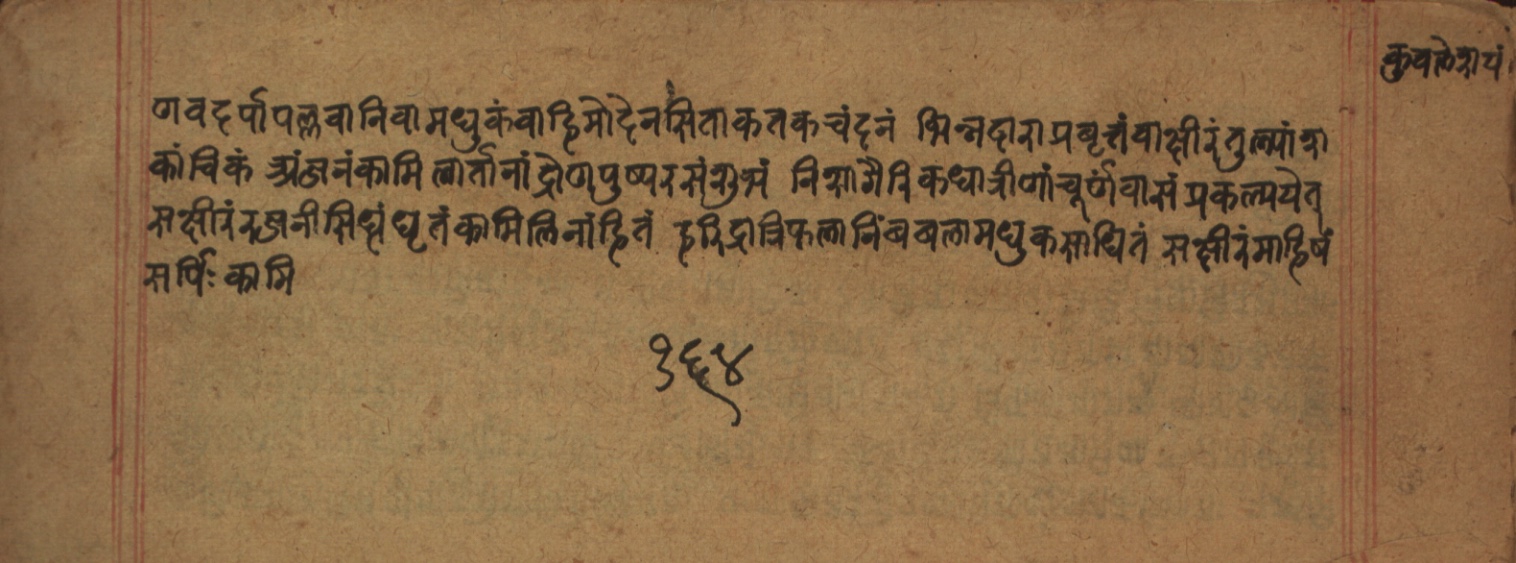 कुवलेशयं
णवदर्पापल्लवानिवामधुकंवाहिमोदेनसिताकतकचंदनं भिन्नद्वाराप्रवृत्तंवाक्षीरंतुल्यांशा
कांचिकं अंजनंकामिलार्तानांद्रोणपुष्परसंशुभं निशागैरिकधात्रीणांचूर्णंवासंप्रकल्पयेत्
सक्षीरंरजनीसिद्धंघृतंकामिलिनांहितं हरिद्रात्रिफलानिंबबलामधुकसाधितं सक्षीरंमाहिषं
सर्पिः कामि
१६४